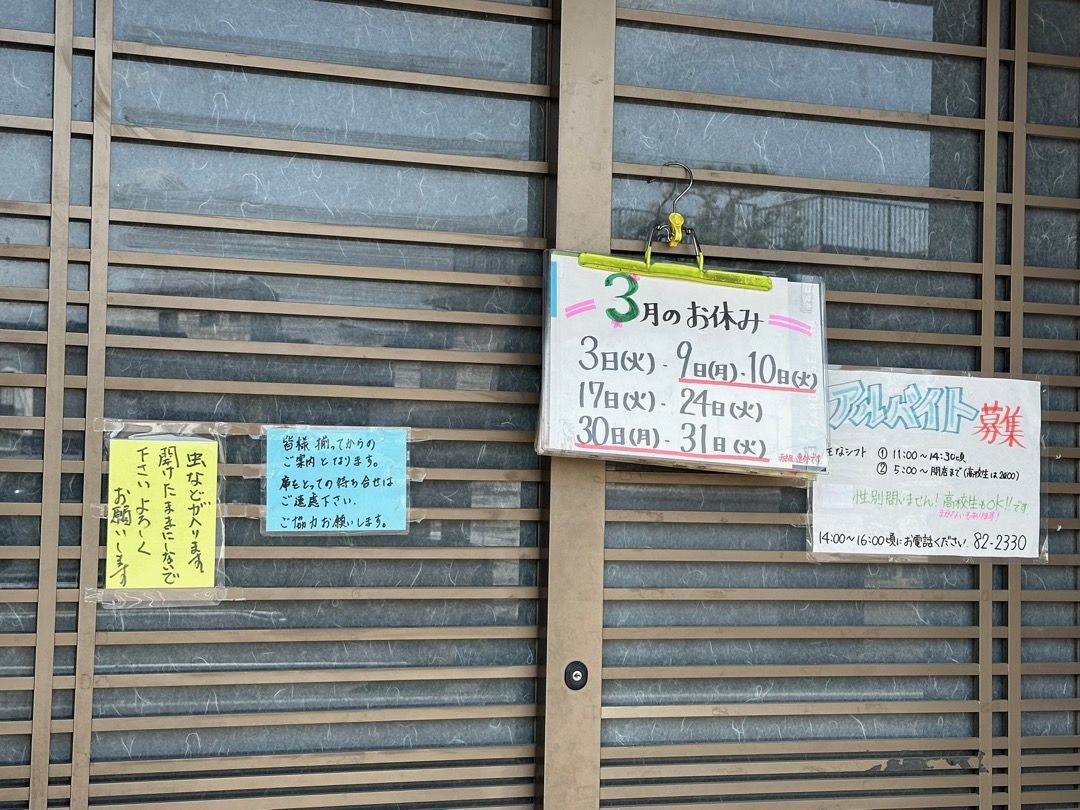 虫などが入ります。
開けたままにしないで
下さい よろしく
お願いします
皆様 揃ってからの
ご案内となります。
席をとっての待ち合せは
ご遠慮下さい。
ご協力お願いします。
3月のお休み
3日(火)・9日(月)・10日(火)
17日(火)・24日(火)
30日(月)・31日(火)
アルバイト募集
なシフト ①11:00～14:30頃
②5:00～閉店まで(高校生は
性別問いません！高校生もOK!!です
まかないもあります！
14:00～16:00頃にお電話ください 82-2330